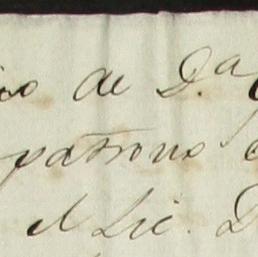 de D.ª
patrono
el Lic. D